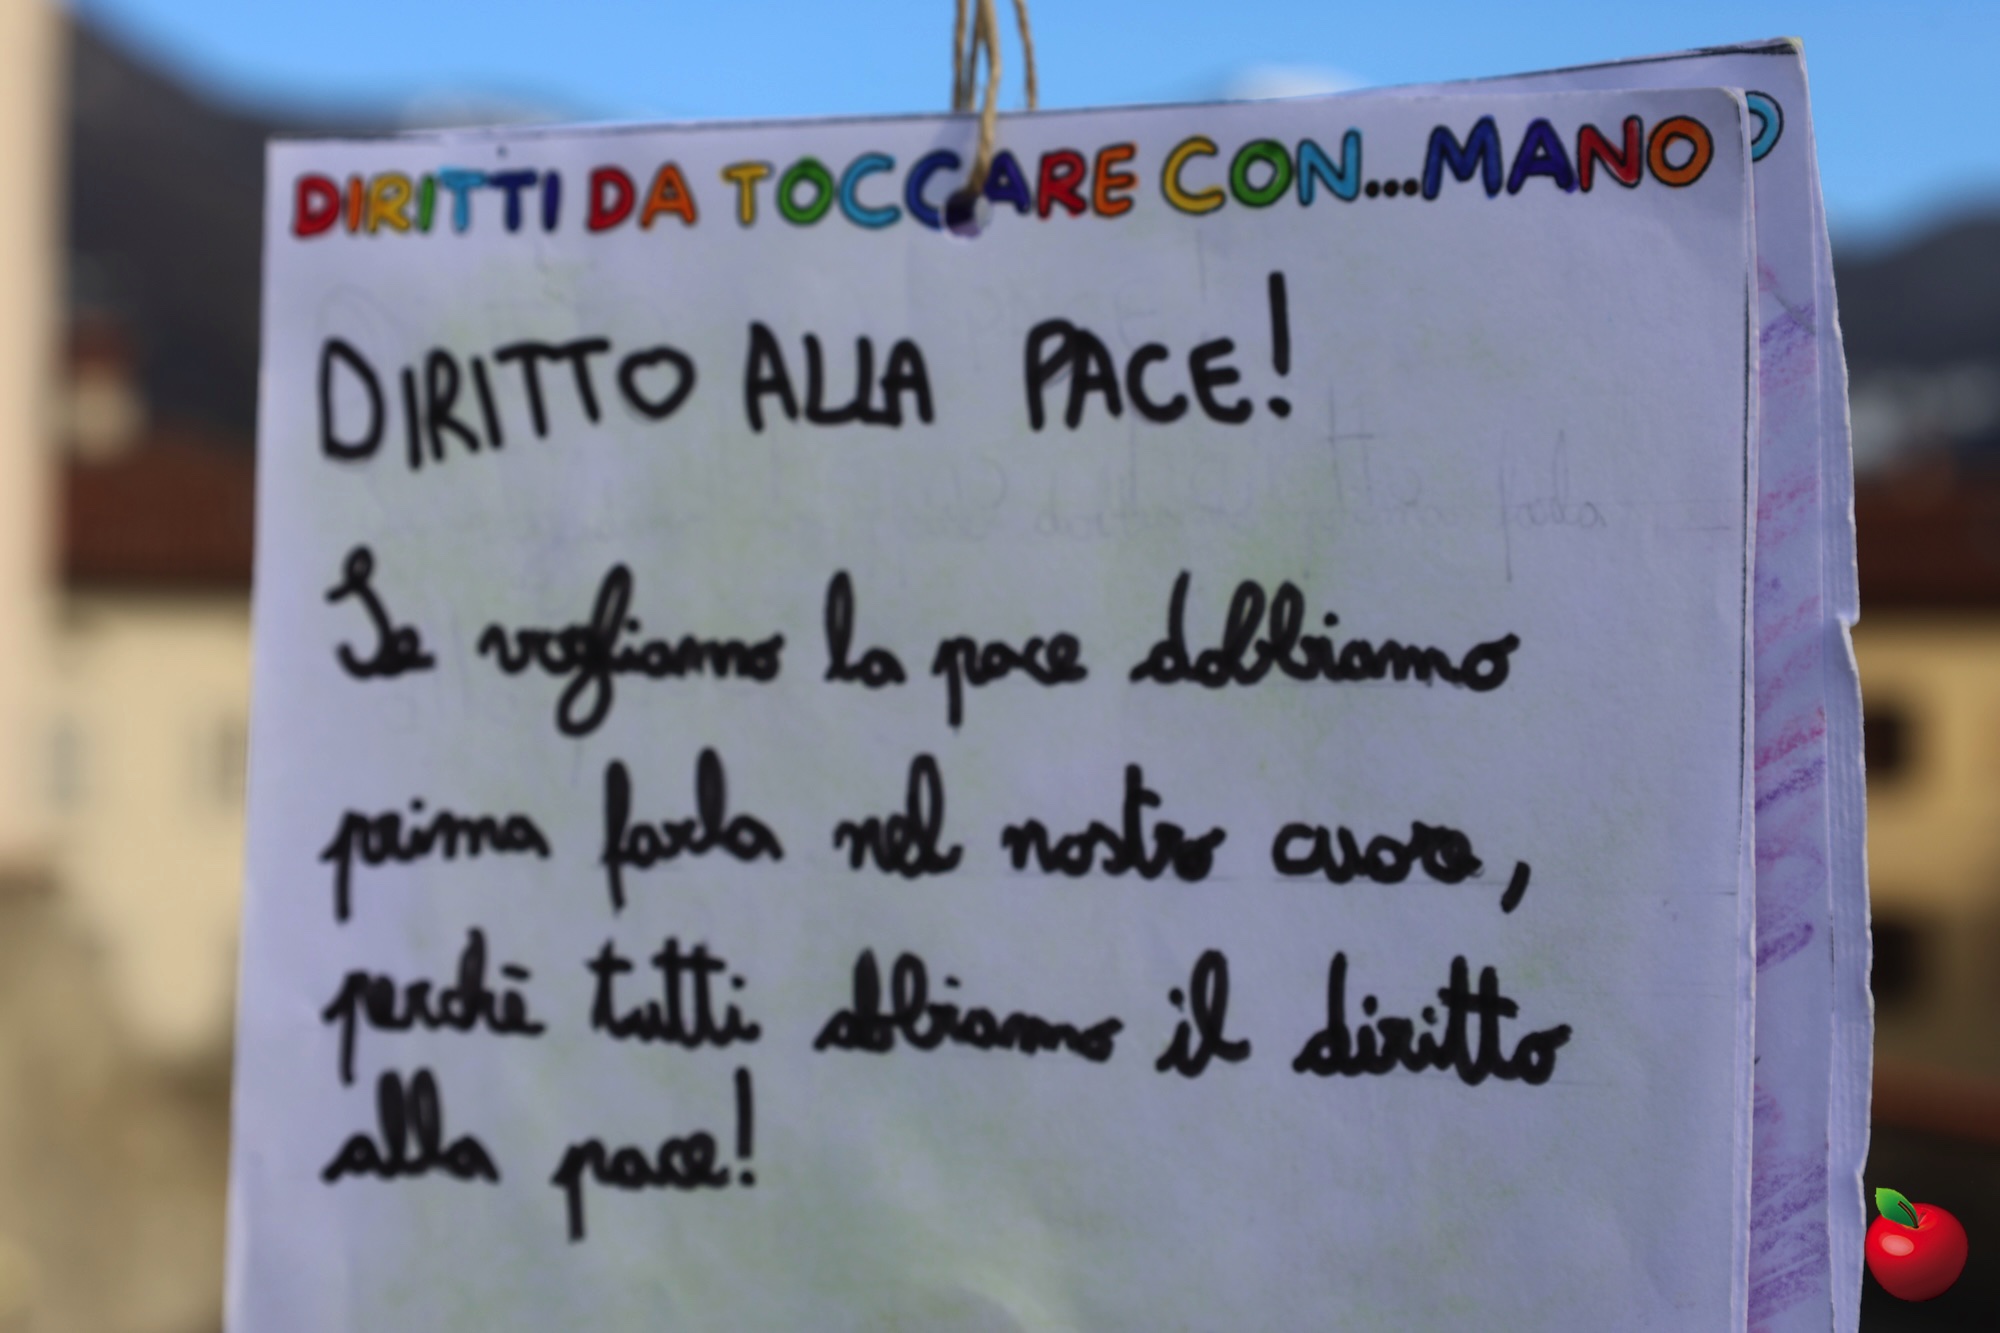 DIRITTI DA TOCCARE CON...MANO
DIRITTO ALLA PACE!
Se vogliamo la pace dobbiamo
prima farla nel nostro cuore,
perchè tutti abbiamo il diritto
alla pace!